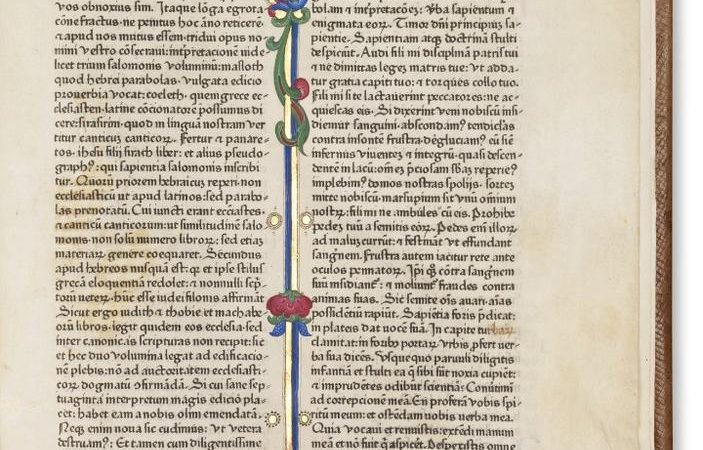 vos obnoxius sim. Itaq̄ lōga egrotatione fractus: ne penitus hoc āno reticere
⁊ apud vos mutus essem. tridui opus nomini vestro cōsecraui: int̄pretatione videlicet trium salomonis voluminū: masloth
quod hebrei parabolas. vulgata edicio
prouerbia vocat: coeleth. quem grece ecclesiasten. latine cōcionatorē possumus dicere: sirasirim. quod in linguā nostram vertitur canticū canticoꝝ. Fertur ⁊ panaretos. ihesu filij sirach liber: et alius pseudographꝰ: qui sapientia salomonis inscribitur. Quoꝝ priorem hebraicum reperi. non
ecclesiasticū ut apud latinos: sed parabolas prenotatū. Cui iuncti erant ecclastes.
⁊ canticū canticorum: ut similitudinē salomonis. non solū numero libroꝝ: sed etiam
materiaꝝ genere coequaret. Secundus
apud hebreos nusquā est: qꝛ et ipse stilus
grecā eloquentiā redolet: ⁊ nonnulli scͥptoꝝ veteꝝ. hūc esse iudei filonis affirmāt
Sicut ergo iudith ⁊ thobie et machabeorū libros. legit quidem eos ecclesia. sed
inter canonicas scripturas non recipit: sic
et hec duo volumina legat ad edificationē plebis: nō ad auctoritatem ecclesiasticoꝝ dogmatū ꝯfirmādā. Si cui sane septuaginta interpretum magis edicio placet: habet eam a nobis olim emendatā.
Neqꝫ enim noua sic cudimus: ut vetera
destruamꝰ: Et tamen cum diligentissime
bolam ⁊ inťpretacōeꝫ: v̄ba sapientum ⁊
enigmata eoꝝ. Timor dn̄i principiuꝫ sapientie. Sapientiam atqꝫ doctrinā stulti
despiciūt. Audi fili mi disciplinā patris tui
⁊ ne dimittas legeꝫ matris tue: vt addatur gratia capiti tuo: ⁊ torques collo tuo.
Fili mi si te lactauerint peccatores: ne acquiescas eis. Si dixerint veni nobiscū insidiemur sanguini. abscondamꝰ tendiclas
contra insontē frustra. deglutiamꝰ eū sicut
infernus viuenteꝫ ⁊ integrū. quasi descendentē in lacū: om̄eꝫ p̄ciosam sb̄aꝫ reperiemꝰ
implebimꝰ domos nostras spolijs. sortem
mitte nobiscū. marsupium sit vnū omniū
nostꝝ: fili mi ne ambules cū eis. Prohibe
pedeꝫ tuū a semitis eoꝝ. Pedes eni illoꝝ
ad malūꝫ currūt: ⁊ festināt vt effundant
sangnem. Frustra autem iacitur rete ante
oculos pennatoꝝ. Ip̄i qꝫ cōtra sangnem
suū insidiantᷣ: ⁊ moliunt᷑ fraudes contra
animas suas. Sic semite oīs auari. aīas
possidētiū rapiūt. Sapiētia foris p̄dicat:
in plateis dat vocē suā. In capite turbaꝝ
clamitat: in foribꝰ portaꝝ vrbis ꝓfert verba sua dicēs. Vsquequo paruuli diligitis
infantiā et stulti ea q̄ sibi sūt noxia cupiēt:
⁊ imprudētes odibūt scientiā: Conūtimī
ad correptionē meā. En proferā vobis spiritū meum: et ostēdam vobis verba mea.
Quia vocaui et renuistis: extēdi manum
meā et nō fuit q̄ aspiceͭt. Despexistis omne